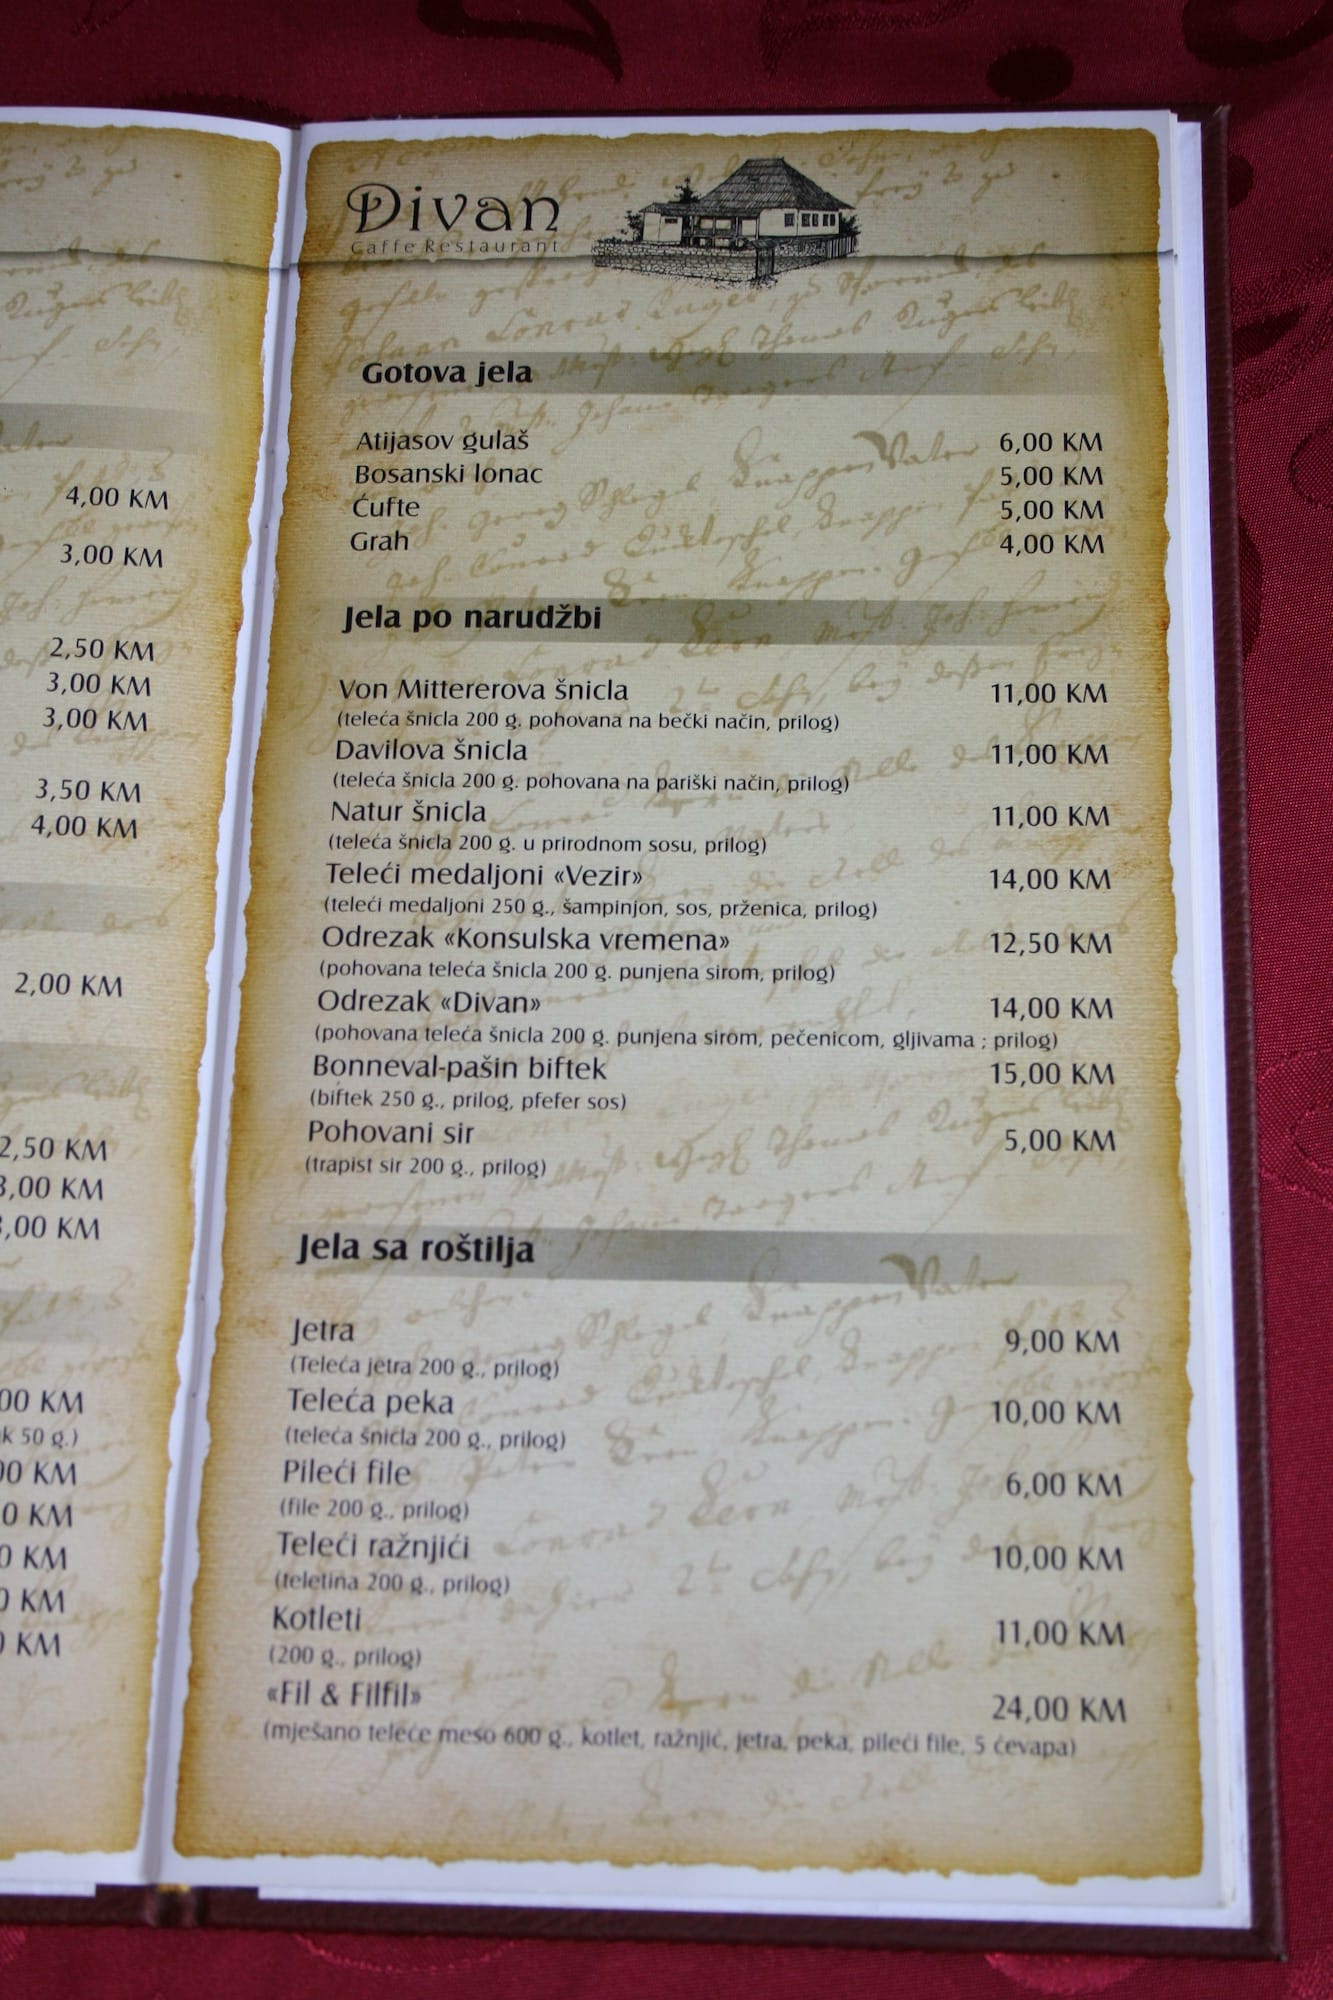 4,00 KM
3,00 KM
2,50 KM
3,00 KM
3,00 KM
3,50 KM
4,00 KM
2,00 KM
2,50 KM
3,00 KM
,00 KM
00 KM
k 50 g.)
00 KM
0 KM
0 KM
0 KM
KM
Divan
Caffe Restaurant
Gotova jela
Atijasov gulaš 6,00 KM
Bosanski lonac 5,00 KM
Ćufte 5,00 KM
Grah 4,00 KM
Jela po narudžbi
Von Mittererova šnicla 11,00 KM
(teleća šnicla 200 g. pohovana na bečki način, prilog)
Davilova šnicla 11,00 KM
(teleća šnicla 200 g. pohovana na pariški način, prilog)
Natur šnicla 11,00 KM
(teleća šnicla 200 g. u prirodnom sosu, prilog)
Teleći medaljoni «Vezir» 14,00 KM
(teleći medaljoni 250 g., šampinjon, sos, prženica, prilog)
Odrezak «Konsulska vremena» 12,50 KM
(pohovana teleća šnicla 200 g. punjena sirom, prilog)
Odrezak «Divan» 14,00 KM
(pohovana teleća šnicla 200 g. punjena sirom, pečenicom, gljivama ; prilog)
Bonneval-pašin biftek 15,00 KM
(biftek 250 g., prilog, pfefer sos)
Pohovani sir 5,00 KM
(trapist sir 200 g., prilog)
Jela sa roštilja
Jetra 9,00 KM
(Teleća jetra 200 g., prilog)
Teleća peka 10,00 KM
(teleća šnicla 200 g., prilog)
Pileći file 6,00 KM
(file 200 g., prilog)
Teleći ražnjići 10,00 KM
(teletina 200 g., prilog)
Kotleti 11,00 KM
(200 g., prilog)
«Fil & Filfil» 24,00 KM
(mješano teleće meso 600 g., kotlet, ražnjić, jetra, peka, pileći file, 5 ćevapa)